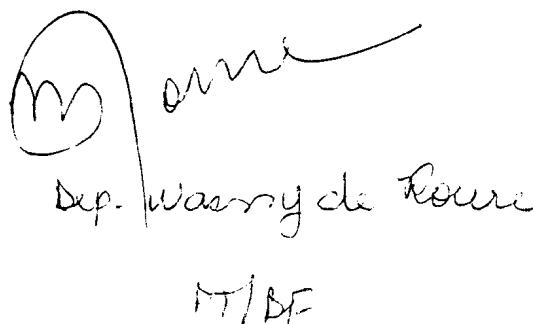 Dep. Wasny de Roure
PT/DF